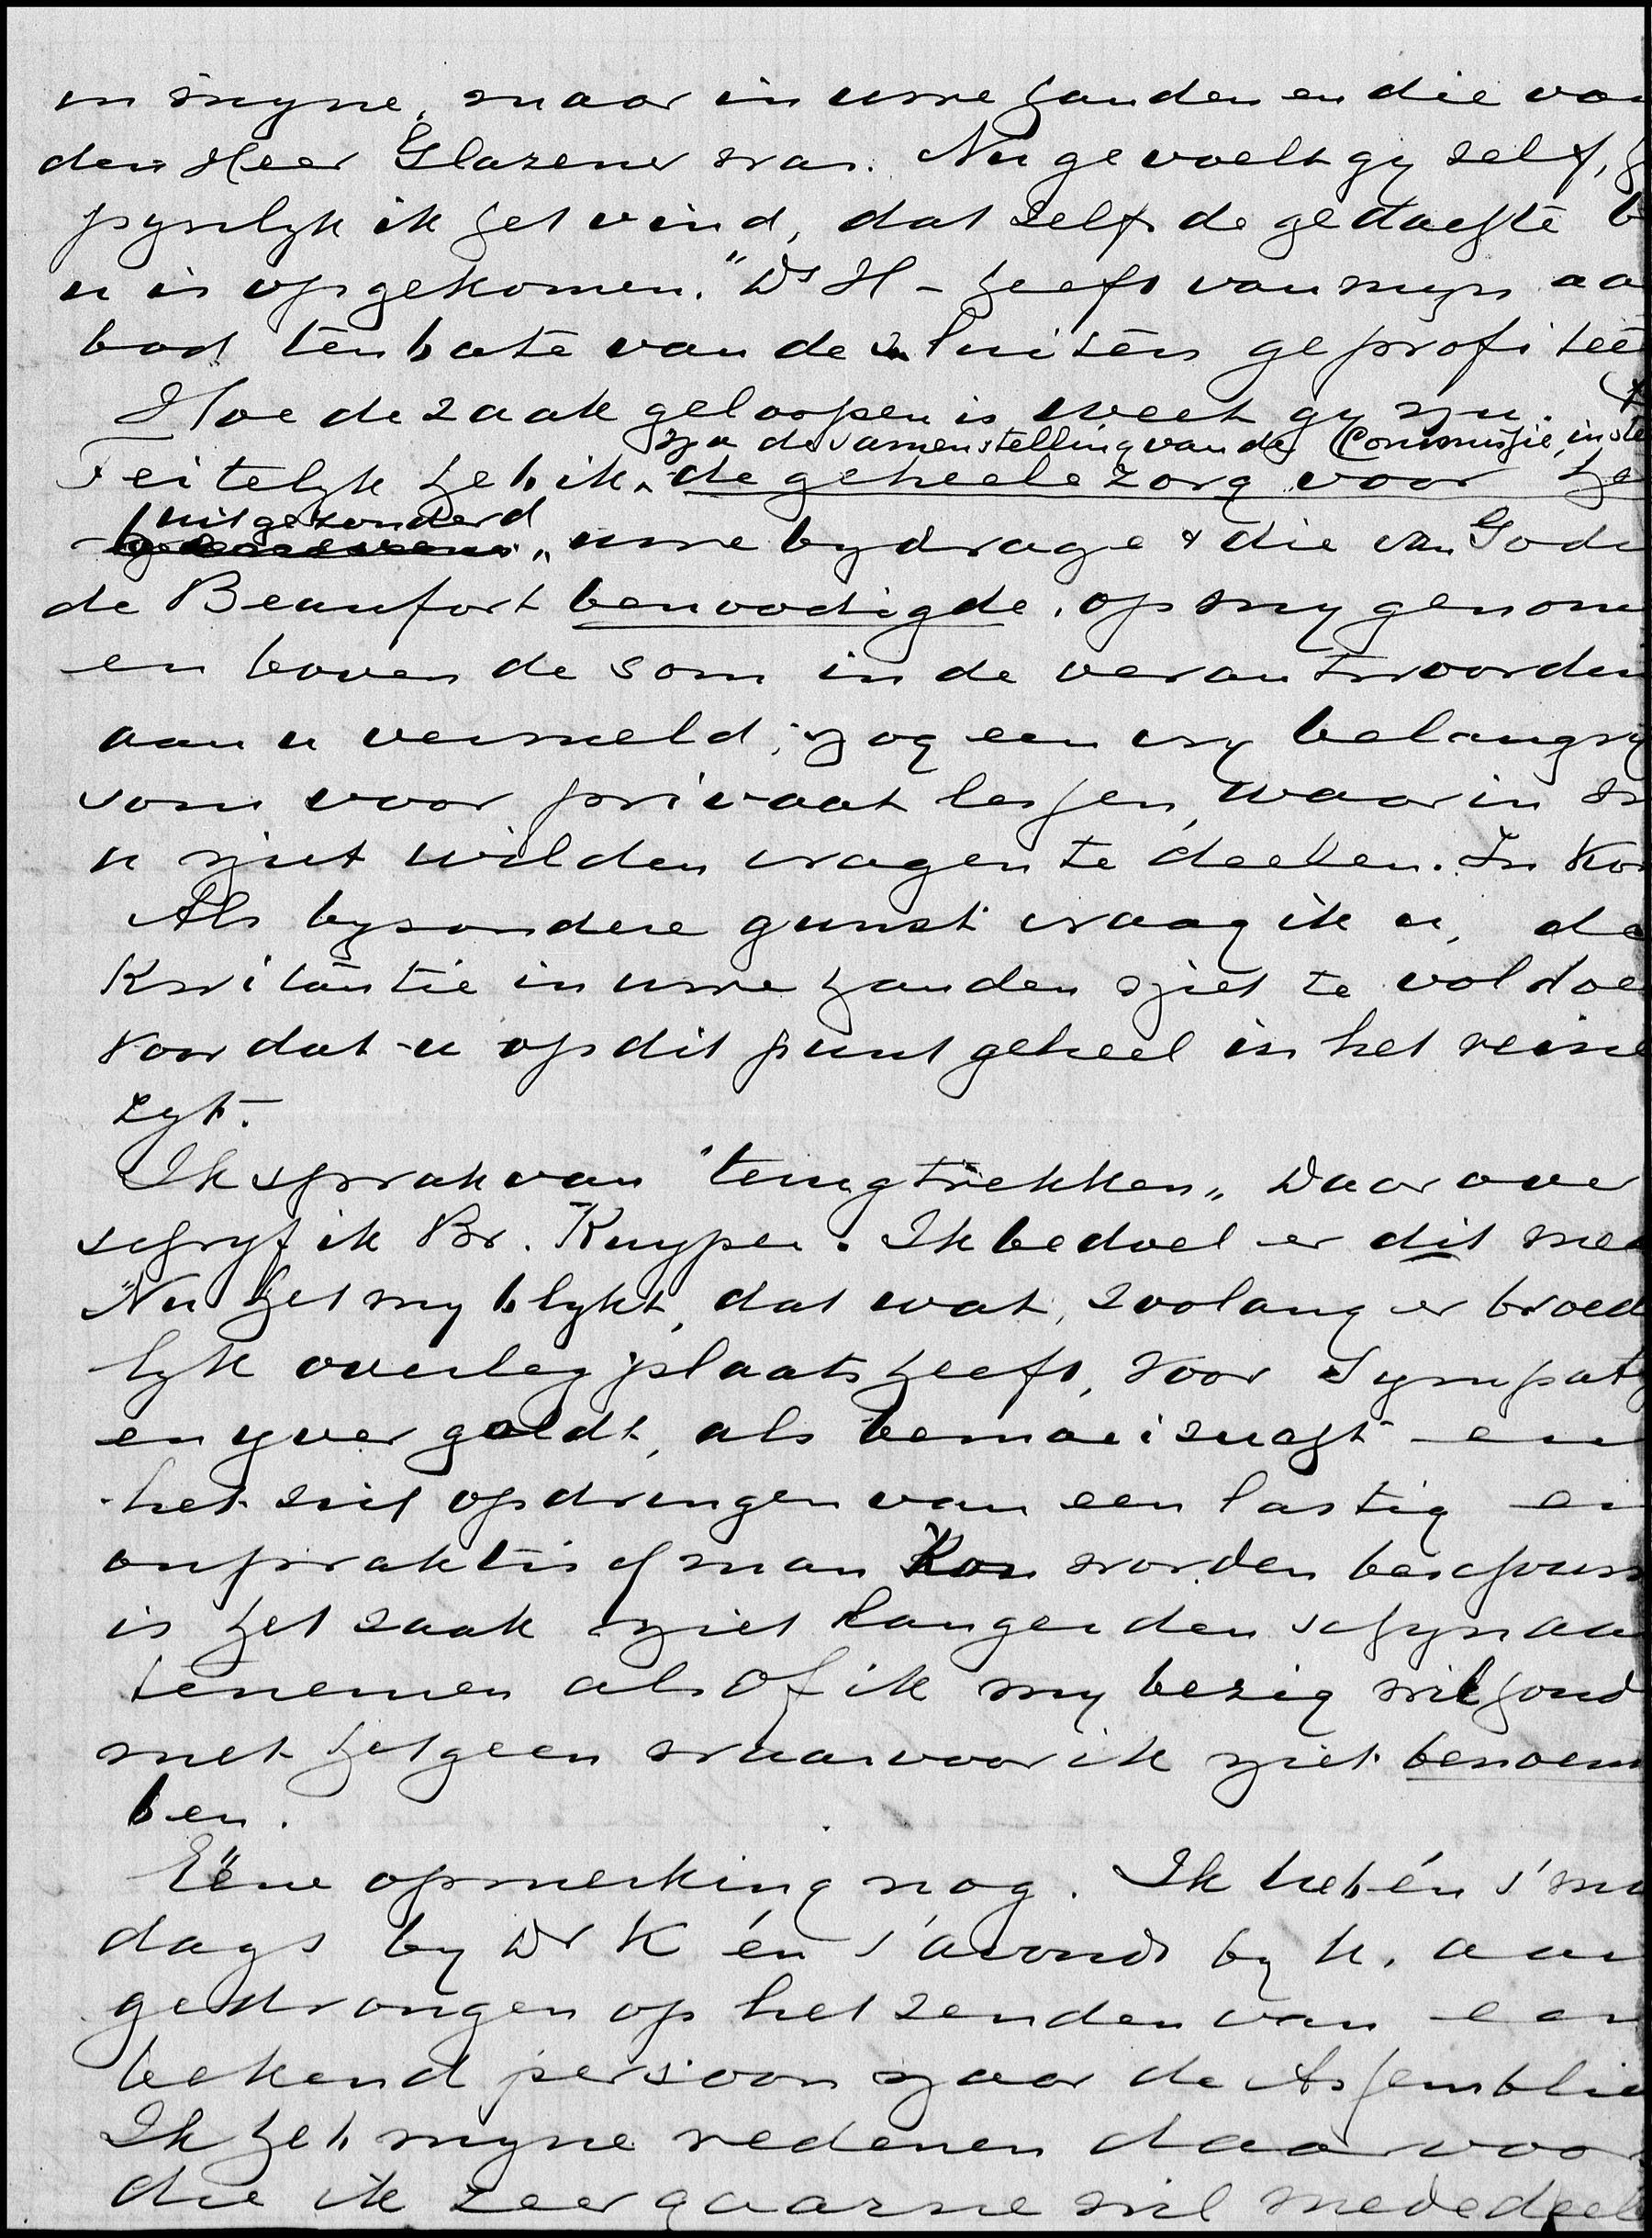 in myne, maar in uwe handen en die va
den Heer Glazener was. Nu gevoelt gy zelf, h
pynlyk ik het vind, dat zelfs de gedachte b
u is opgekomen. "Ds H - heeft van myn aa
bod ten bate van de sluiters geprofitee
Hoe de zaak geloopen is weet gy nu.
na de samenstelling van de Commissie, in ste
Feitelyk heb ik de geheele zorg voor he
uitgezonderd
uwe bydrage & die van Gode
de Beaufort benoodigde, op my genom
en boven de som in de verantwoordin
aan u vermeld, nog een vry belangry
som voor privaat lessen, waarin w
u niet wilden vragen te deelen. In Kor
Als byzondere gunst vraag ik u, de
Kwitantie in uwe handen niet te voldoe
voordat u op dit punt geheel in het reine
zyt.
Ik sprak van "terugtrekken" Daarover
schryf ik Br. Kuyper. Ik bedoel er dit mee
"Nu het my blykt, dat wat, zoolang er broed
lyk overleg plaats heeft, voor Sympath
en yver geldt, als bemoeizucht en
het zich opdringen van een lastig en
onpraktisch man kon worden beschouw
is het zaak niet langer den schyn aa
te nemen alsof ik my bezig wil houd
met hetgeen waarvoor ik niet benoem
ben.
Eéne opmerking nog. Ik heb én s'mi
dags by Dr K én s'avonds by u, aan
gedrongen op het zenden van een
bekend persoon naar de Assemblie
Ik heb myne redenen daarvoor
die ik zeer gaarne wil mededeel